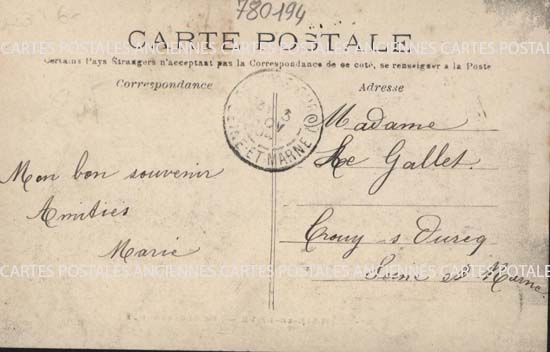 780194
CARTE POSTALE
Certains Pays Étrangers n'acceptant pas la Correspondance de ce coté, se renseigner a la Poste
Correspondance
Adresse
SEINE-ET-MARNE
Madame
Gallet
Mon bon souvenir
Amitiés
Marie
Crouy-s-Ourcq
Seine et Marne
CARTES POSTALES ANCIENNES CARTES POSTALES ANCIENNES CARTES POSTALES
CARTES POSTALES ANCIENNES CARTES POSTALES ANCIENNES CARTES POTALE
CARTES POSTALES ANCIENNES CARTES POSTALES ANCIENNES CARTES POSTALES